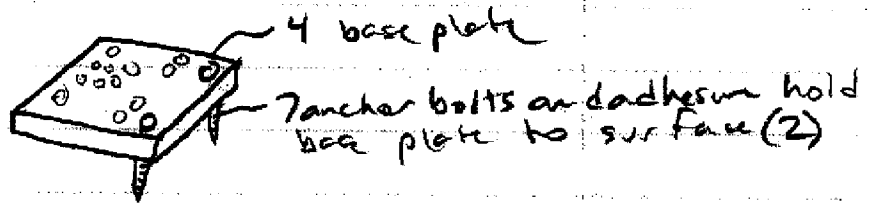 4 base plate
7 anchor bolts and adhesive hold
base plate to surface (2)